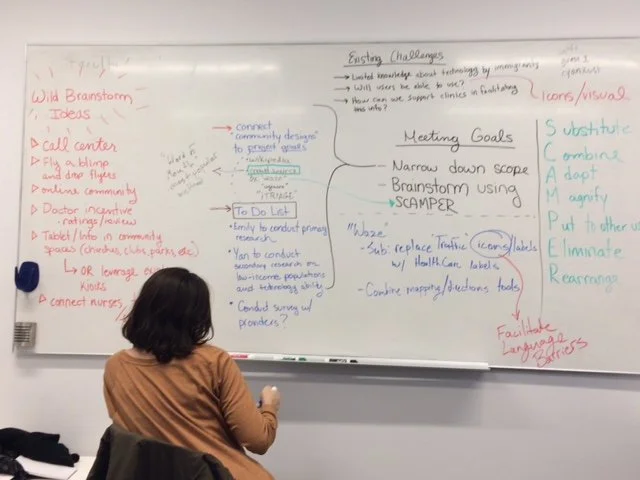 Wild Brainstorm
Ideas
call center
Fly a blimp
and drop flyers
online community
Doctor incentive
ratings/review
Tablet/Info in community
spaces (churches, clubs, parks, etc)
OR leverage
Kiosks
connect nurses,
connect
"community designs"
to present goals
"wikipedia"
"ITRIAGE"
To Do List
Emily to conduct primary
research
Yan to conduct
secondary research on
low-income populations
and technology ability
Conduct survey w/
providers?
Existing Challenges
Limited knowledge about technology by immigrants
Will users be able to use?
How can we support clinics in facilitating
this info?
Icons/visual
Meeting Goals
- Narrow down scope
- Brainstorm using
SCAMPER
"Waze"
- Sub: replace "Traffic" icons/labels
w/ HealthCare labels
- Combine mapping/directions tools
Facilitate
Language
Barriers
Substitute
Combine
Adapt
Magnify
Put to other us
Eliminate
Rearrange